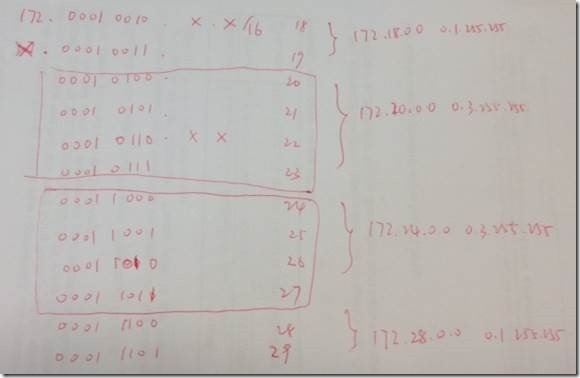 172. 0001 0010 . x . x/16 18 172.18.0.0 0.1.255.255
. 0001 0011 . 19
0001 0100 . 20
0001 0101 . 21 172.20.0.0 0.3.255.255
0001 0110 . x x 22
0001 0111 23
0001 1000 24
0001 1001 25 172.24.0.0 0.3.255.255
0001 1010 26
0001 1011 27
0001 1100 28 172.28.0.0 0.1.255.255
0001 1101 29